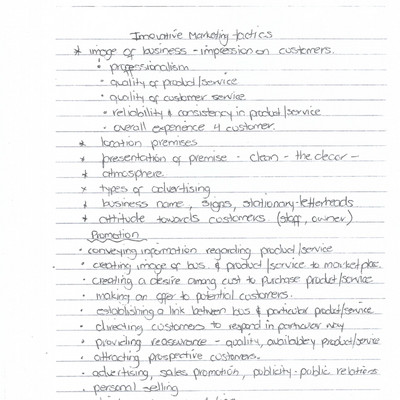 Innovative Marketing tactics
* image of business - impression on customers.
• professionalism
• quality of product/service
• quality of customer service
• reliability & consistency in product/service
• overall experience 4 customer.
* location premises
* presentation of premise - clean - the decor -
* atmosphere
* types of advertising
* business name, signs, stationary-letterheads
* attitude towards customers (staff, owner)
Promotion
• conveying information regarding product/service
• creating image of bus. & product/service to market place.
• creating a desire among cust to purchase product/service
• making an offer to potential customers.
• establishing a link between bus & particular product/service
• directing customers to respond in particular way
• providing reassurance - quality, availability product/service
• attracting prospective customers.
• advertising, sales promotion, publicity - public relations
• personal selling